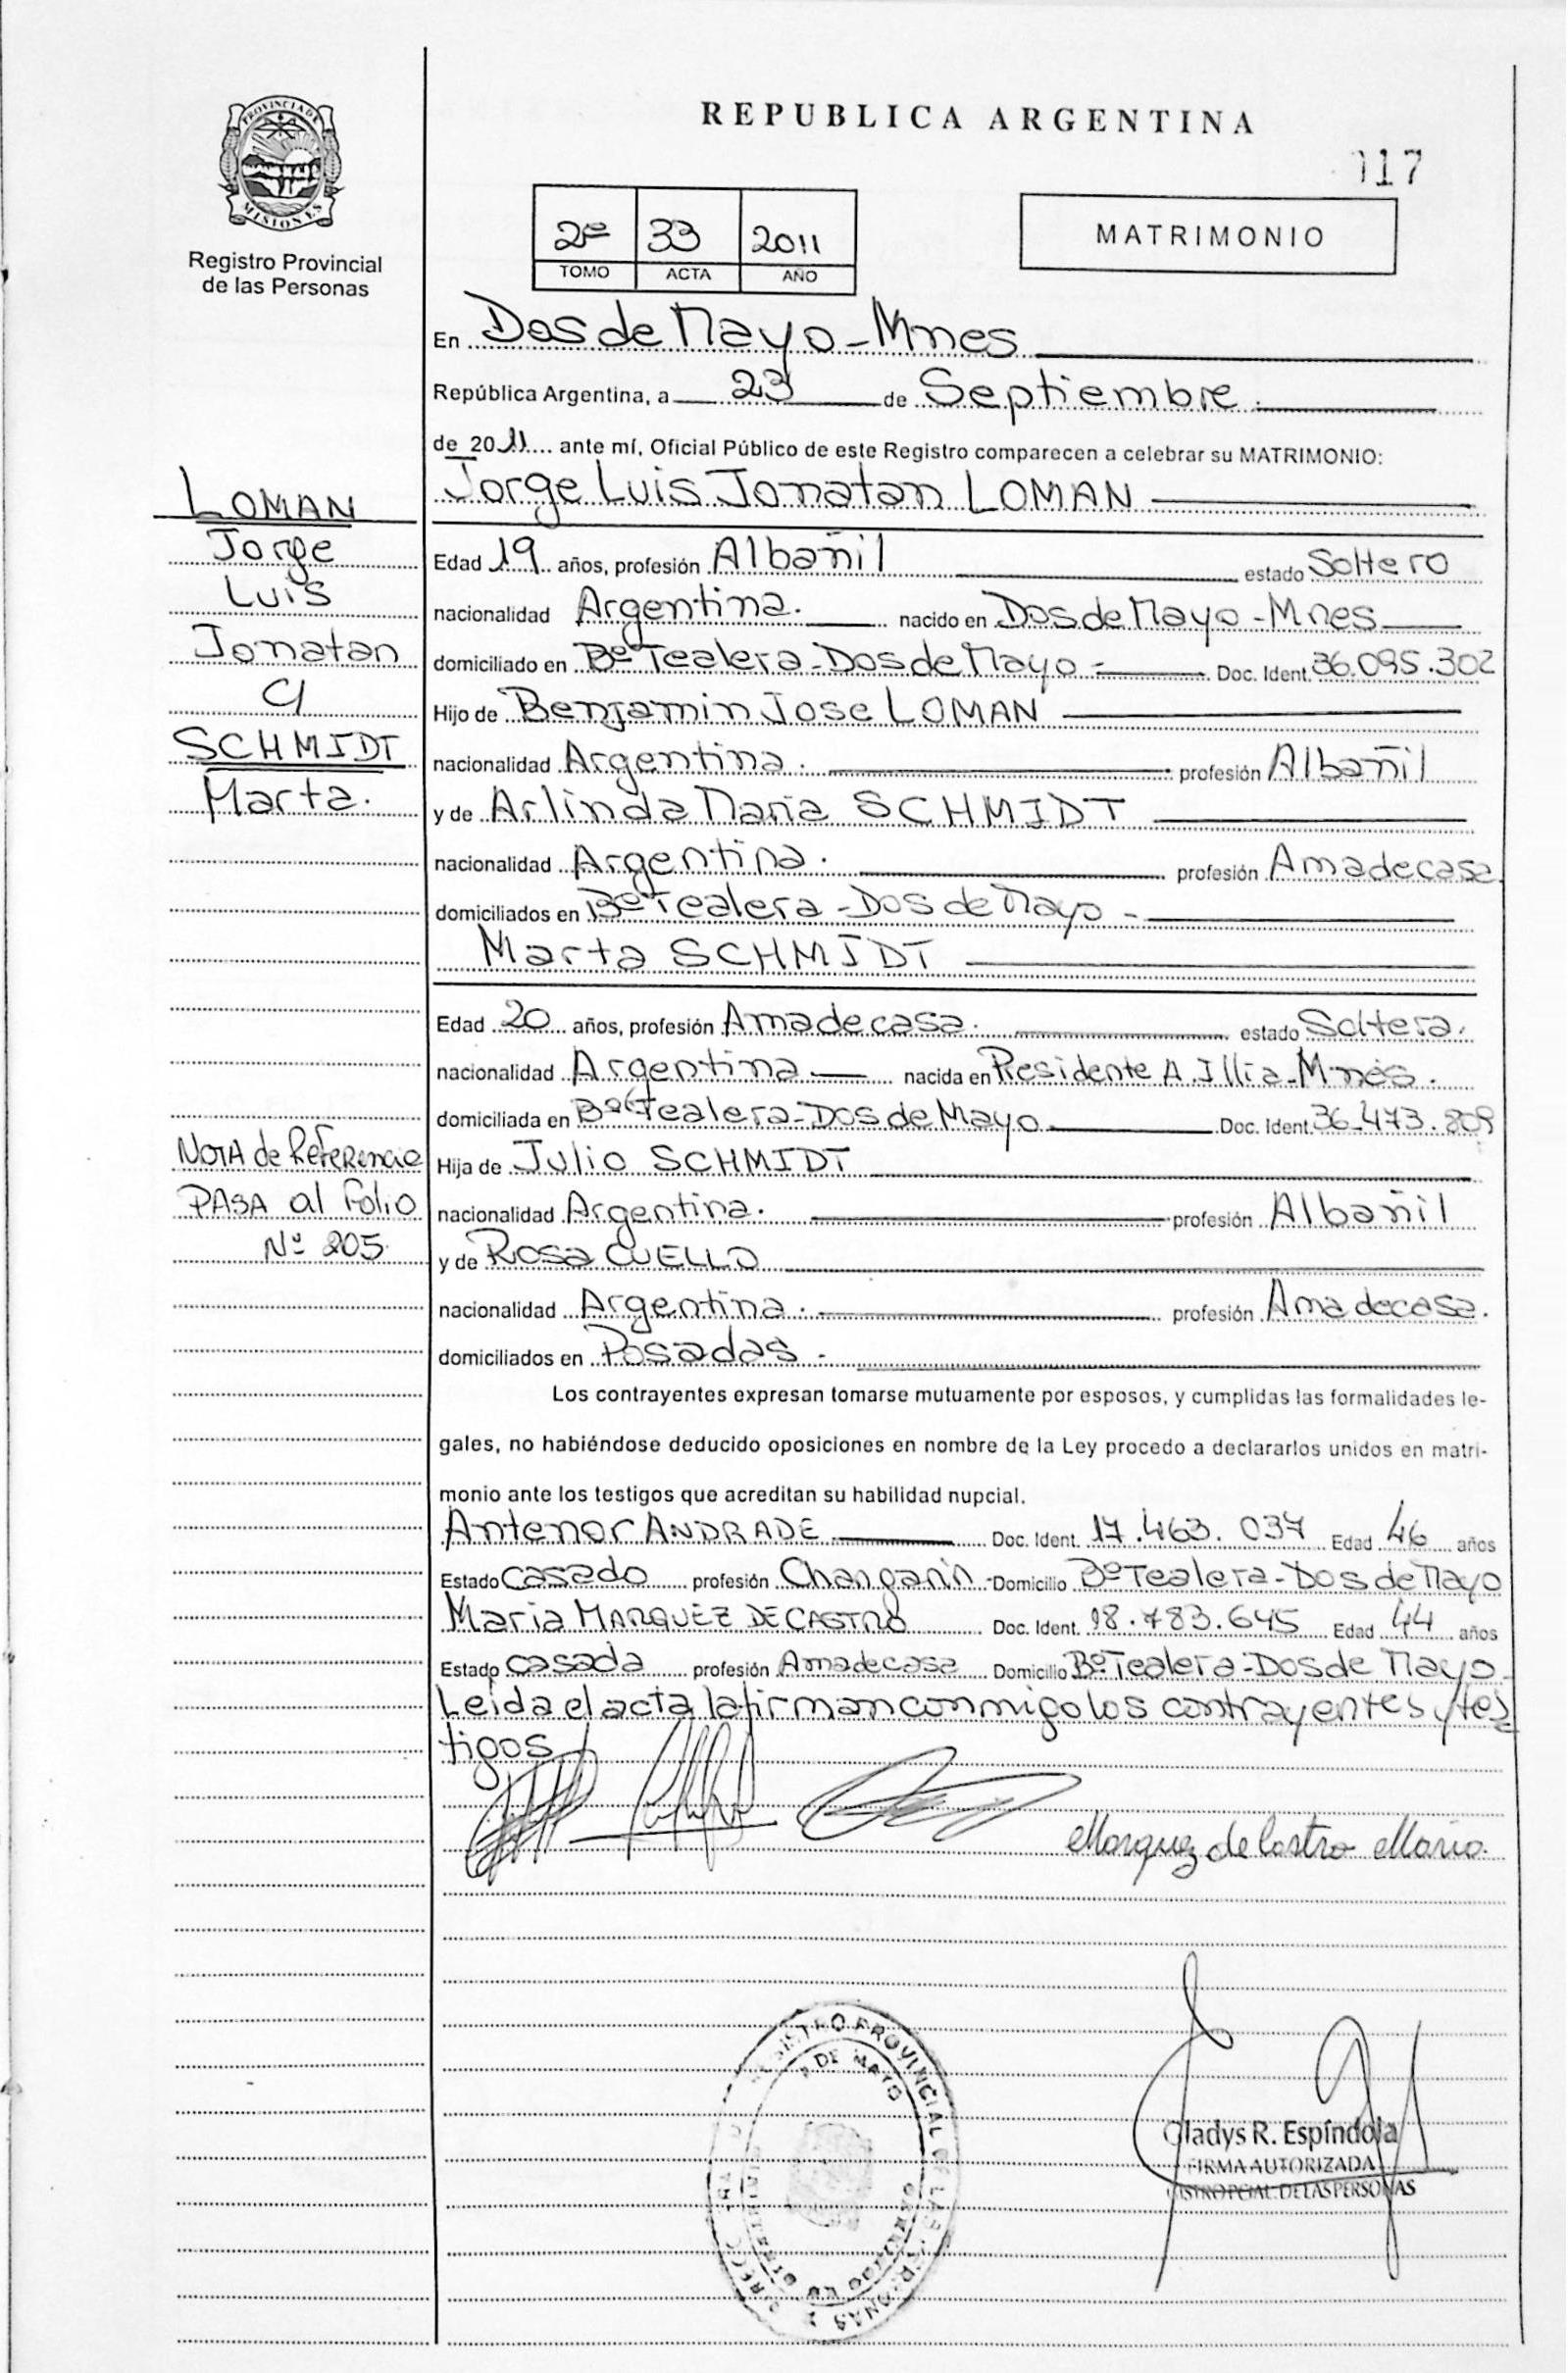 REPUBLICA ARGENTINA
117
PROVINCIA DE
MISIONES
Registro Provincial
de las Personas
2º 33 2011
TOMO ACTA AÑO
MATRIMONIO
En Dos de Mayo - Mnes
República Argentina, a 23 de Septiembre.
de 2011 ante mí, Oficial Público de este Registro comparecen a celebrar su MATRIMONIO:
Jorge Luis Jonatan LOMAN
Edad 19 años, profesión Albañil estado Soltero
nacionalidad Argentina. nacido en Dos de Mayo - Mnes
domiciliado en Bº Tealera - Dos de Mayo - Doc. Ident. 36.095.302
Hijo de Benjamin Jose LOMAN
nacionalidad Argentina. profesión Albañil
y de Arlinda Maria SCHMIDT
nacionalidad Argentina. profesión Ama de casa
domiciliados en Bº Tealera - Dos de Mayo -
Marta SCHMIDT
Edad 20 años, profesión Ama de casa. estado Soltera.
nacionalidad Argentina nacida en Presidente A. Illia - Mnes.
domiciliada en Bº Tealera - Dos de Mayo Doc. Ident. 36.473.809
Hija de Julio SCHMIDT
nacionalidad Argentina. profesión Albañil
y de Rosa CUELLO
nacionalidad Argentina. profesión Ama de casa.
domiciliados en Posadas -
Los contrayentes expresan tomarse mutuamente por esposos, y cumplidas las formalidades le-
gales, no habiéndose deducido oposiciones en nombre de la Ley procedo a declararlos unidos en matri-
monio ante los testigos que acreditan su habilidad nupcial.
Antenor ANDRADE Doc. Ident. 17.463.037 Edad 46 años
Estado casado profesión Changarin Domicilio Bº Tealera - Dos de Mayo
Maria MARQUEZ DE CASTRO Doc. Ident. 18.783.645 Edad 44 años
Estado casada profesión Ama de casa Domicilio Bº Tealera - Dos de Mayo -
Leida el acta la firman conmigo los contrayentes y tes
tigos
Marquez de Castro Maria.
LOMAN
Jorge
Luis
Jonatan
c/
SCHMIDT
Marta.
NOTA de Referencia
PASA al Folio
Nº 205
REGISTRO PROVINCIAL DE LAS PERSONAS
DE MAYO
Gladys R. Espíndola
FIRMA AUTORIZADA
PCIAL. DE LAS PERSONAS